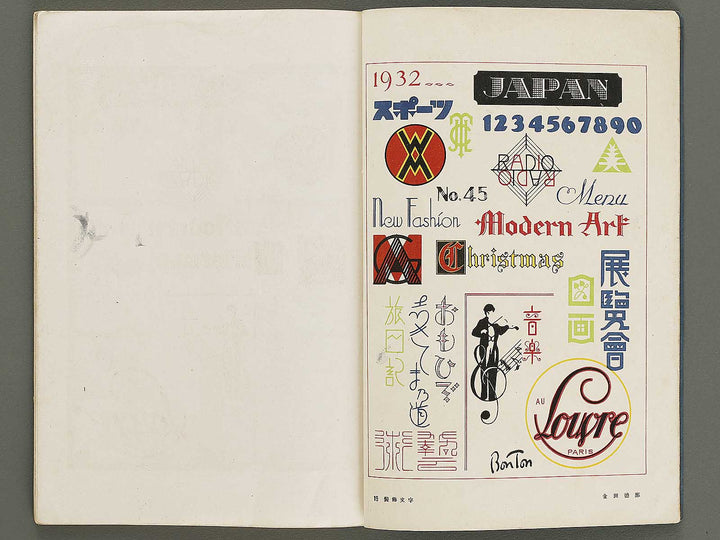 1932...
JAPAN
スポーツ
1234567890
WM
RADIO
RADIO
No.45
Menu
New Fashion
Modern Art
Christmas
展覧會
図画
旅日記
おもひで
音楽
藝術
AU
Louvre
PARIS
BonTon
装飾文字